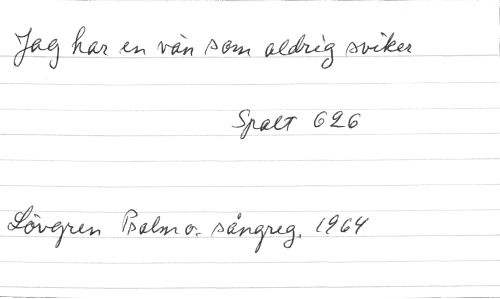 Jag har en vän som aldrig sviker
Spalt 626
Lövgren Psalm o. sångreg. 1964